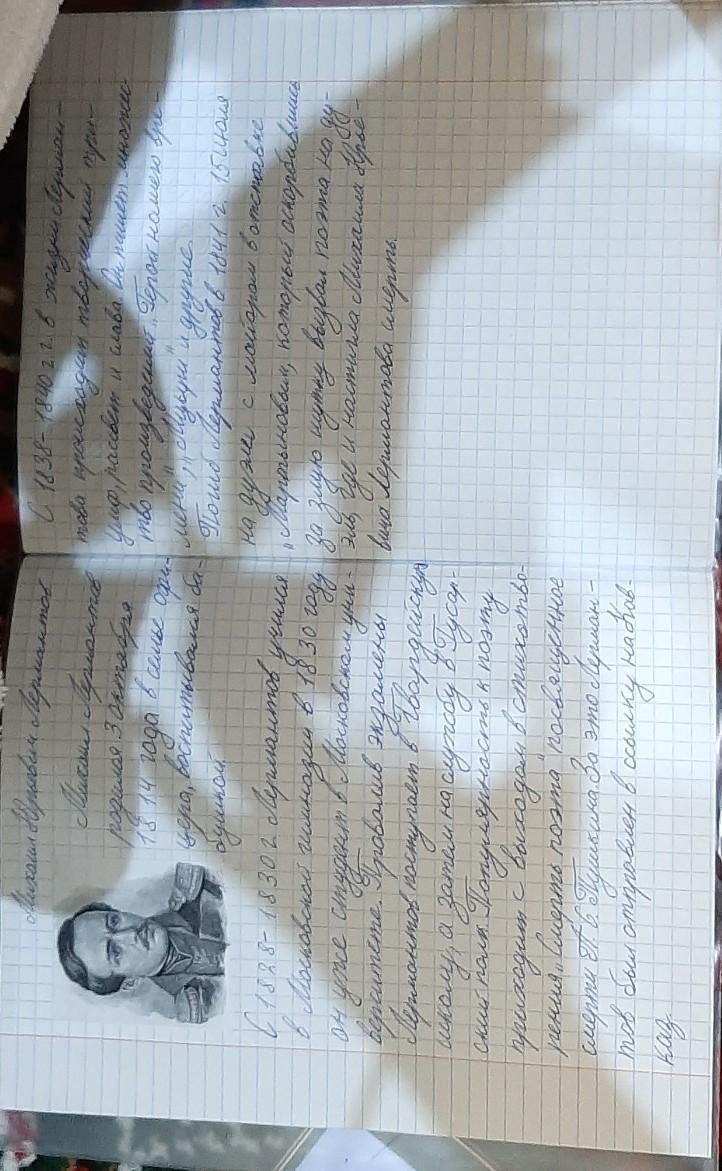 Михаил Юрьевич Лермонтов
Михаил Лермонтов
родился 3 октября
1814 года в семье офи-
цера, воспитывался ба-
бушкой.
С 1828-1830 г. Лермонтов учился
в Московской гимназии в 1830 году
он уже студент в Московском уни-
верситете. Провалив экзамены
Лермонтов поступает в Гвардейскую
школу, а затем на службу в Гусар-
ский полк. Популярность к поэту
приходит с выходом в стихотво-
рения „Смерть поэта" посвященное
смерти А. С. Пушкина. За это Лермон-
тов был отправлен в ссылку на Кав-
каз.
С 1838-1840 г.г. в жизни Лермон-
това происходит творческий три-
умф, рассвет и слава. Он пишет множес-
тво произведений „Герой нашего вре-
мени", „Мцыри" и другие.
Погиб Лермонтов в 1841 г. 15 июля
на дуэли с майором в отставке
„Мартыновым, который оскорбившись
за злую шутку вызвал поэта на ду-
эль, где и настигла Михаила Юрье-
вича Лермонтова смерть.